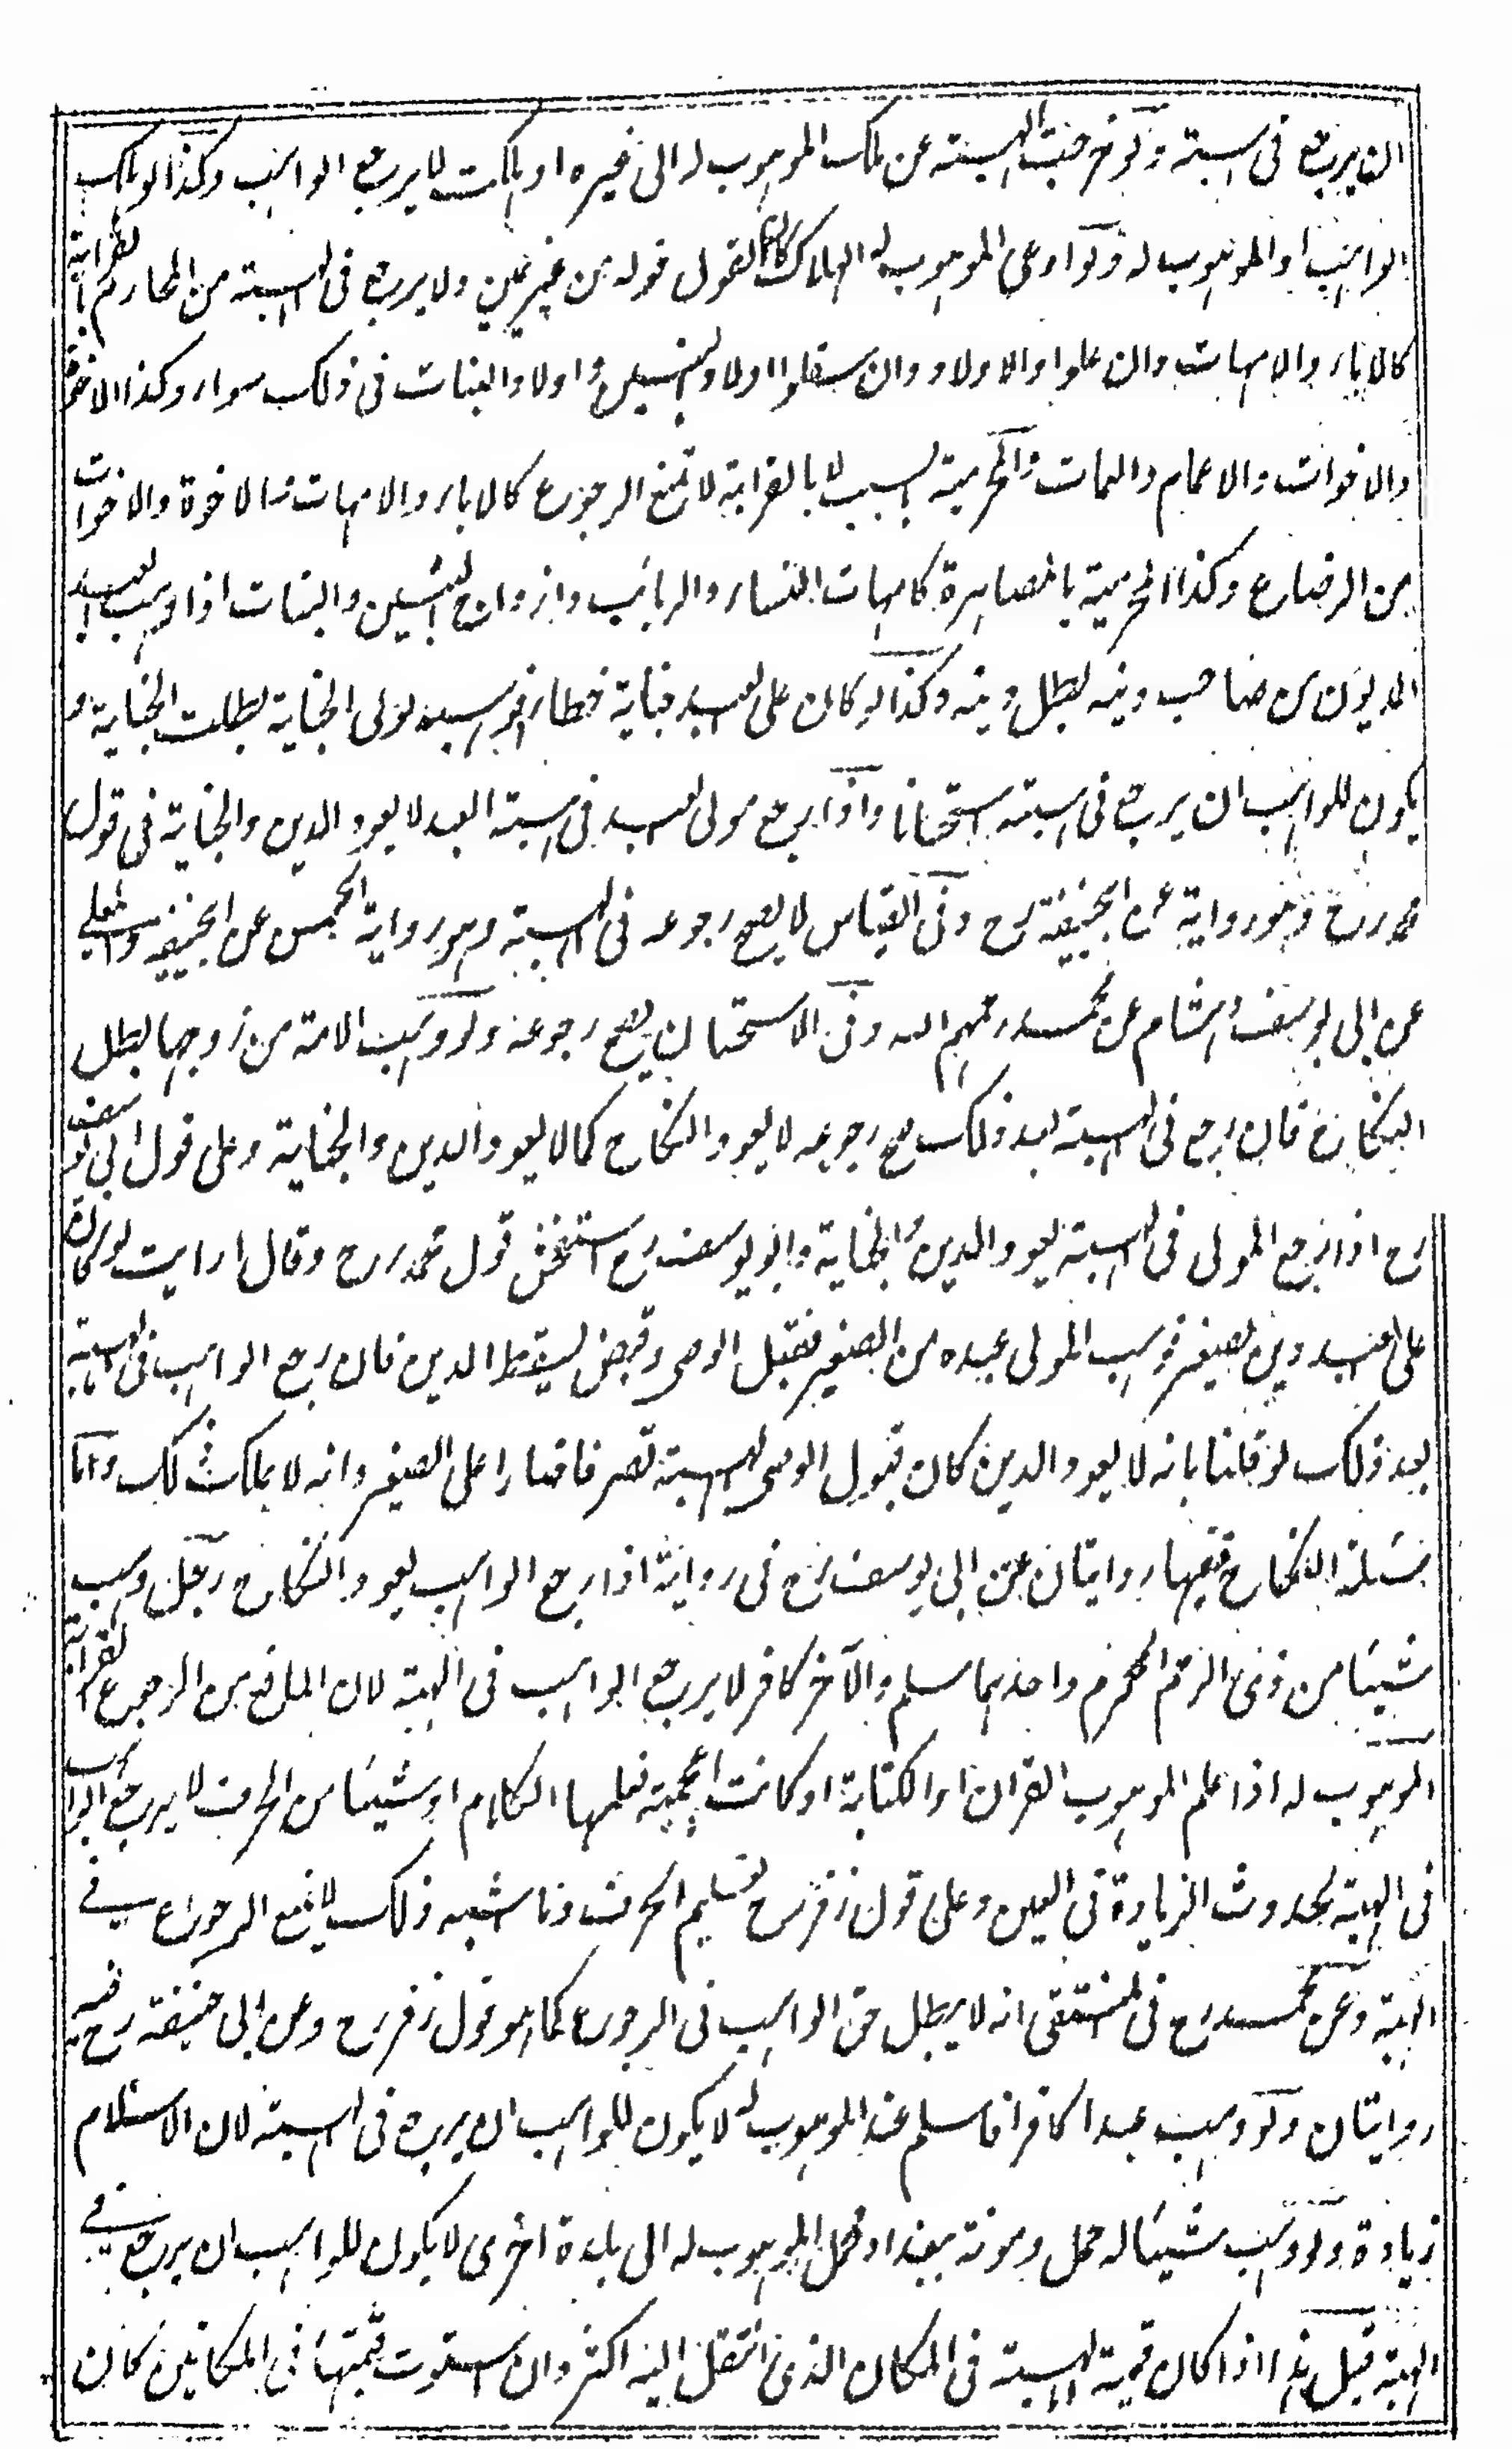 ان يرجع فى هبته ولو خرجت الهبة عن ملك الموهوب له الى غيره او هلكت لا يرجع الواهب وكذا لو هلك
الواهب او الموهوب له ولو ادعى الموهوب له الهلاك كان القول قوله من غير يمين ولا يرجع فى الهبة من المحارم بالقرابة
كالاباء والامهات وان علوا والاولاد وان سفلوا اولاد البنين واولاد البنات فى ذلك سواء وكذا الاخوة
والاخوات والاعمام والعمات والمحرمية بالسبب لا بالقرابة لا تمنع الرجوع كالاباء والامهات والاخوة والاخوات
من الرضاع وكذا المحرمية بالمصاهرة كامهات النساء والربائب وازواج البنين والبنات اذا وهب العبد
المديون من صاحب دينه بطل دينه وكذا لو كان على العبد جناية خطأ فوهبه لولى الجناية بطلت الجناية و
يكون للواهب ان يرجع فى هبته استحسانا واذا رجع مولى العبد فى هبة العبد لا يعود الدين والجناية فى قول
محمد رح وهو رواية عن ابى حنيفة رح وفى القياس لا يصح رجوعه فى الهبة وهو رواية الحسن عن ابى حنيفة والمعلى
عن ابى يوسف وهشام عن محمد رحمهم الله وفى الاستحسان يصح رجوعه ولو وهب الامة من زوجها بطل
النكاح فان رجع فى الهبة بعد ذلك صح رجوعه لا يعود النكاح كما لا يعود الدين والجناية وعلى قول ابى يوسف
رح اذا رجع المولى فى الهبة يعود الدين والجناية وابو يوسف رح استفحش قول محمد رح وقال ارايت لو كان
على العبد دين لصغير فوهب المولى عبده من الصغير فقبل الوصى وقبض يسقط الدين فان رجع الواهب فى الهبة
بعد ذلك لو قلنا بانه لا يعود الدين كان قبول الوصى الهبة تصرفا ضارا على الصغير وانه لا يملك ذلك واما
مسئلة النكاح ففيها روايتان عن ابى يوسف رح فى رواية اذا رجع الواهب يعود النكاح رجل وهب
شيئا من ذى الرحم المحرم واحدهما مسلم والآخر كافر لا يرجع الواهب فى الهبة لان المانع من الرجوع القرابة
الموهوب له اذا علم الموهوب القران او الكتابة او كانت اعجمية فعلمها الكلام او شيئا من الحرف لا يرجع الواهب
فى الهبة لحدوث الزيادة فى العين وعلى قول زفر رح تعليم الحرف وما اشبه ذلك لا يمنع الرجوع فى
الهبة وعن محمد رح فى المنتقى انه لا يبطل حق الواهب فى الرجوع كما هو قول زفر رح وعن ابى حنيفة رح فيه
روايتان ولو وهب عبدا كافرا فاسلم عند الموهوب له لا يكون للواهب ان يرجع فى الهبة لان الاسلام
زيادة ولو وهب شيئا له حمل ومونة ببغداد فحمل الموهوب له الى بلدة اخرى لا يكون للواهب ان يرجع فى
الهبة قيل هذا اذا كان قيمة الهبة فى المكان الذى انتقل اليه اكثر وان استوت قيمتها فى المكانين كان